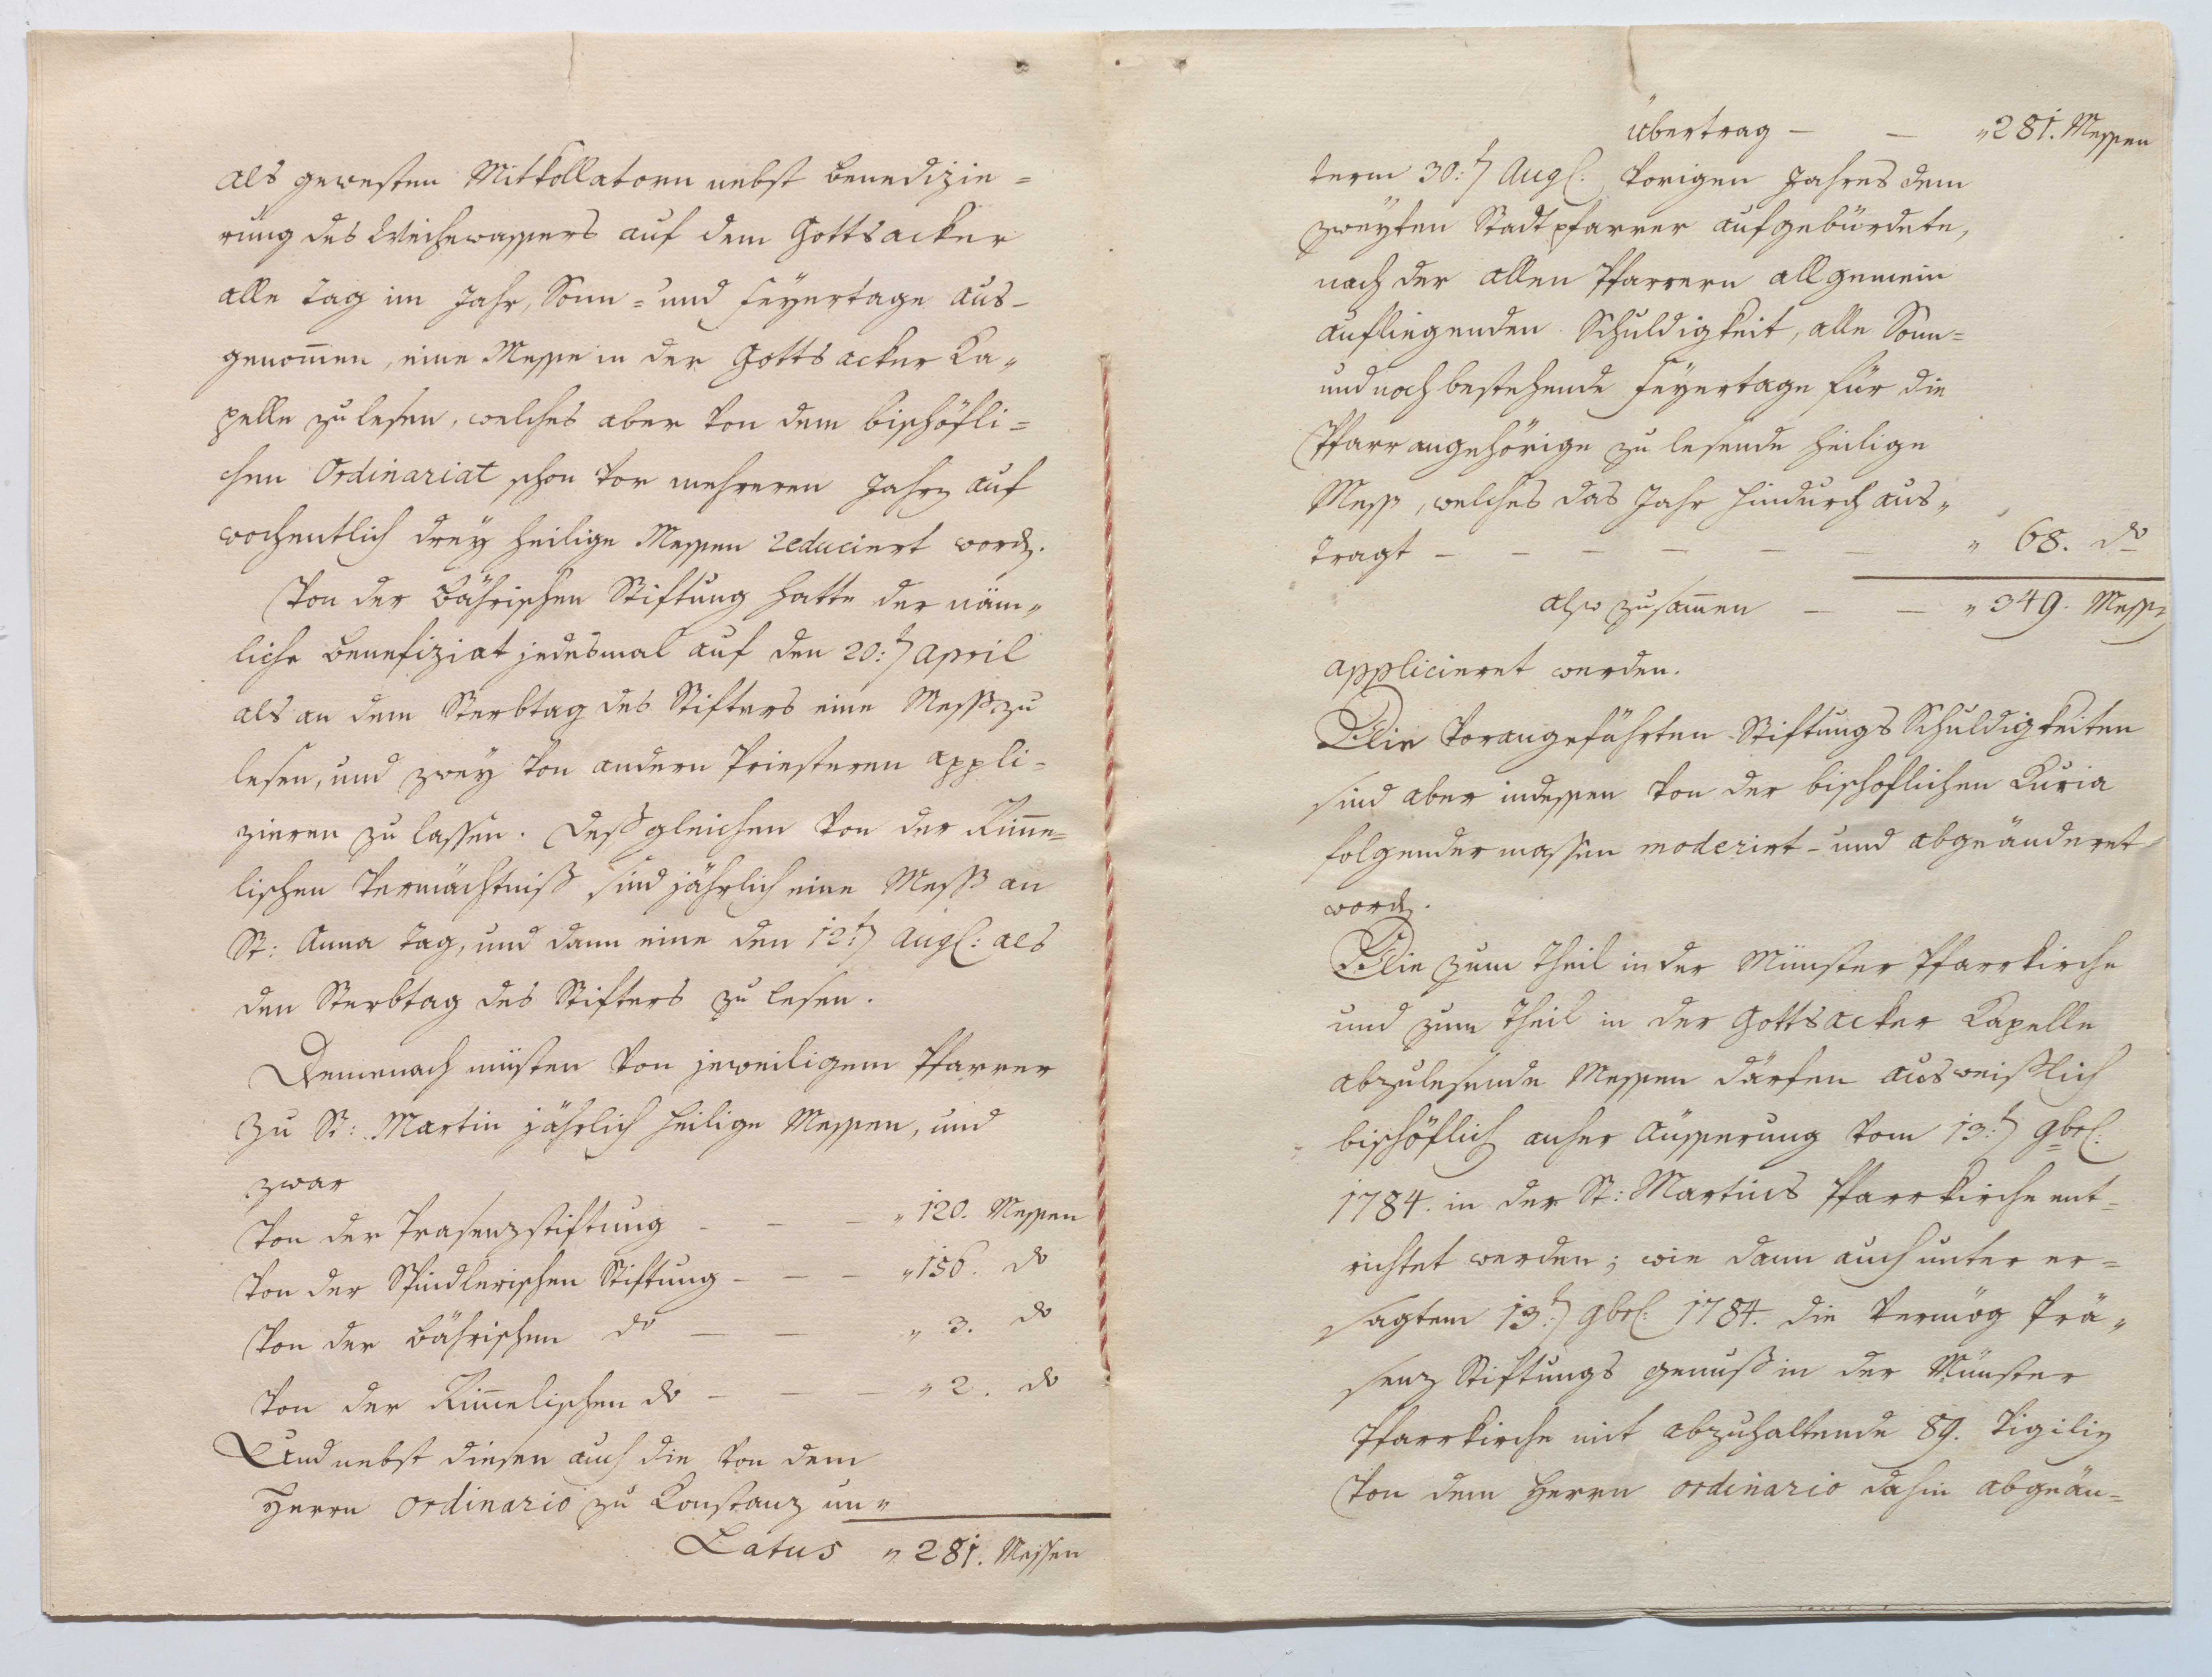 als gewesten Mitkollatorn nebst Benedizie=
rung des Weihewassers auf dem Gottsacker
alle Tag im Jahr, Sonn= und Feyertage aus-
genom̄en, eine Messe in der Gottsacker Ka„
pelle zu lesen, welches aber von dem bischöfli=
chen Ordinariat schon vor mehreren Jahrn auf
wochentlich drey heilige Messen reduciert word.
Von der Bährischen Stiftung hatte der näm„
liche Benefiziat jedesmal auf den 20:t April
als an dem Sterbtag des Stifters eine Mess zu
lesen, und zwey von andern Priesteren appli-
zieren zu lassen. Dessgleichen von der Kim̄e=
lischen Vermächtniß sind jährlich eine Meß an
St: Anna Tag, und dann eine den 12:t Aug: als
den Sterbtag des Stifters zu lesen.
Demenach müsten von jeweiligem Pfarrer
zu St: Martin jährlich heilige Messen, und
zwar
Von der Prasenzstiftung - - - „ 120. Messen
Von der Spindlerischen Stiftung - - - „ 156. do
Von der Bährischen do - - „ 3. do
Von der Kim̄elischen do - - - „ 2. do
Und nebst diesen auch die von dem
Herrn Ordinario zu Konstanz un„
Latus „ 281. Messen
Übertrag - - „ 281. Messen
term 30:t Aug: vorigen Jahres dem
zweyten Stadtpfarrer aufgebürdete,
nach der allen Pfarrern allgemein
aufliegenden Schuldigkeit, alle Sonn=
und noch bestehende Feyertage für die
Pfarrangehörige zu lesende heilige
Mess, welches das Jahr hindurch aus„
tragt - - - - - - „ 68. do
also zusam̄en - - „ 349. Messn
applicieret werden.
Die vorangeführten Stiftungs Schuldigkeiten
sind aber indessen von der bischoflichen Kuria
folgendermassen moderirt- und abgeänderet
word.
Die zum Theil in der Münster Pfarrkirche
und zum Theil in der Gottsacker Kapelle
abzulesende Messen därfen ausweißlich
bischöflich anher Äusserung vom 13:t 9br:
1784. in der St: Martins Pfarrkirche ent=
richtet werden; wie dann auch unter er=
sagtem 13:t 9br: 1784. die vermög Prä„
senz Stiftungs genuß in der Münster
Pfarrkirche mit abzuhaltende 89. Vigilin
Von dem Herrn Ordinario dahin abgeän=